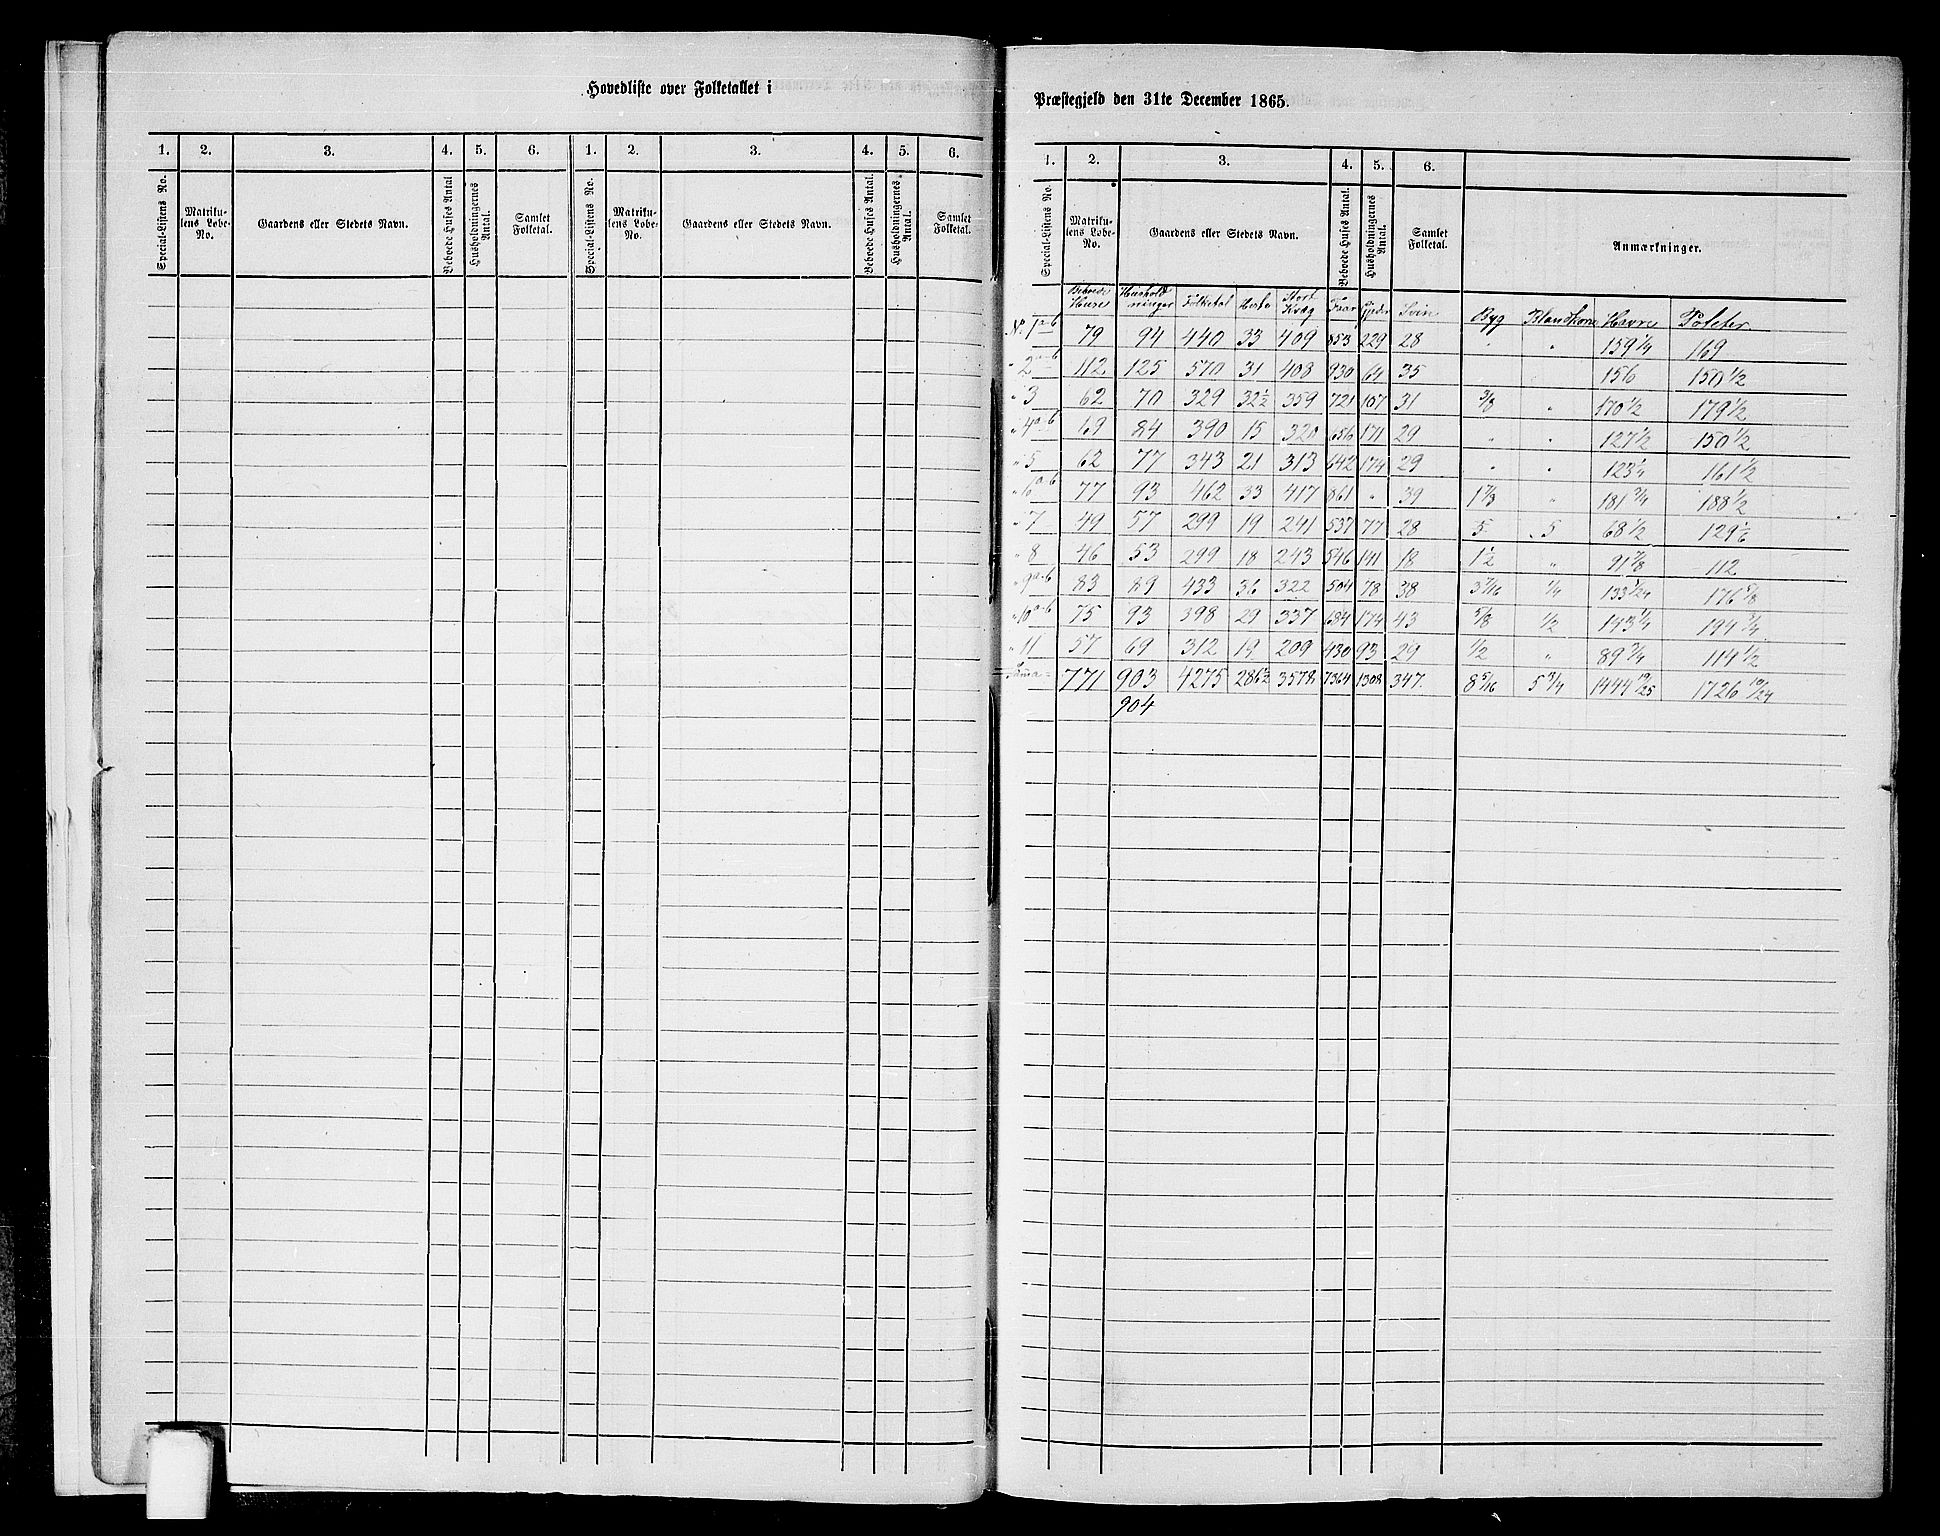 Hovedliste over Folketallet i
1. 2. 3. 4. 5. 6. 1. 2. 3. 4. 5. 6.
Special-Listens No. Matrikulens Løbe-No. Gaardens eller Stedets Navn. Beboede Huses Antal Husholdningernes Antal. Samlet Folketal. Special-Listens No. Matrikulens Løbe-No. Gaardens eller Stedets Navn. Beboede Huses Antal. Husholdningernes Antal. Samlet Folketal.
Præstegjeld den 31te December 1865.
1. 2. 3. 4. 5. 6.
Special-Listens No. Matrikulens Løbe-No. Gaardens eller Stedets Navn. Beboede Huses Antal. Husholdningernes Antal. Samlet Folketal. Anmærkninger.
Beboede Huse Husholdninger Folketal Heste Stort Kvæg Faar Gjeder Svin Byg Blandkorn Havre Poteter
No. 1 a-b 79 94 440 33 409 853 229 28 " " 159 1/4 169
" 2 a-b 112 125 570 31 408 930 64 35 156 150 1/2
" 3 62 70 329 32 1/2 359 721 107 31 3/8 " 170 1/2 179 1/2
" 4 a-b 69 84 390 15 320 656 171 29 " " 127 1/2 150 1/2
" 5 62 77 343 21 313 642 174 29 " " 123 161 1/2
" 6 a-b 77 93 462 33 417 861 " 39 1 7/8 " 181 3/4 188 1/2
" 7 49 57 299 19 241 537 77 28 5 5 68 1/2 129
" 8 46 53 299 18 243 546 141 18 1 1/2 " 91 7/8 112
" 9 a-b 83 89 433 36 322 504 78 38 3 7/16 1/4 133 176
" 10 a-b 75 93 398 29 337 684 174 43 5/8 1/2 143 1/4 194 3/4
" 11 57 69 312 19 209 430 93 29 1/2 " 89 3/4 114 1/2
Suma 771 903 4275 286 1/2 3578 7364 1308 347. 8 5/16 5 3/4 1444 19/25 1726 19/24
904